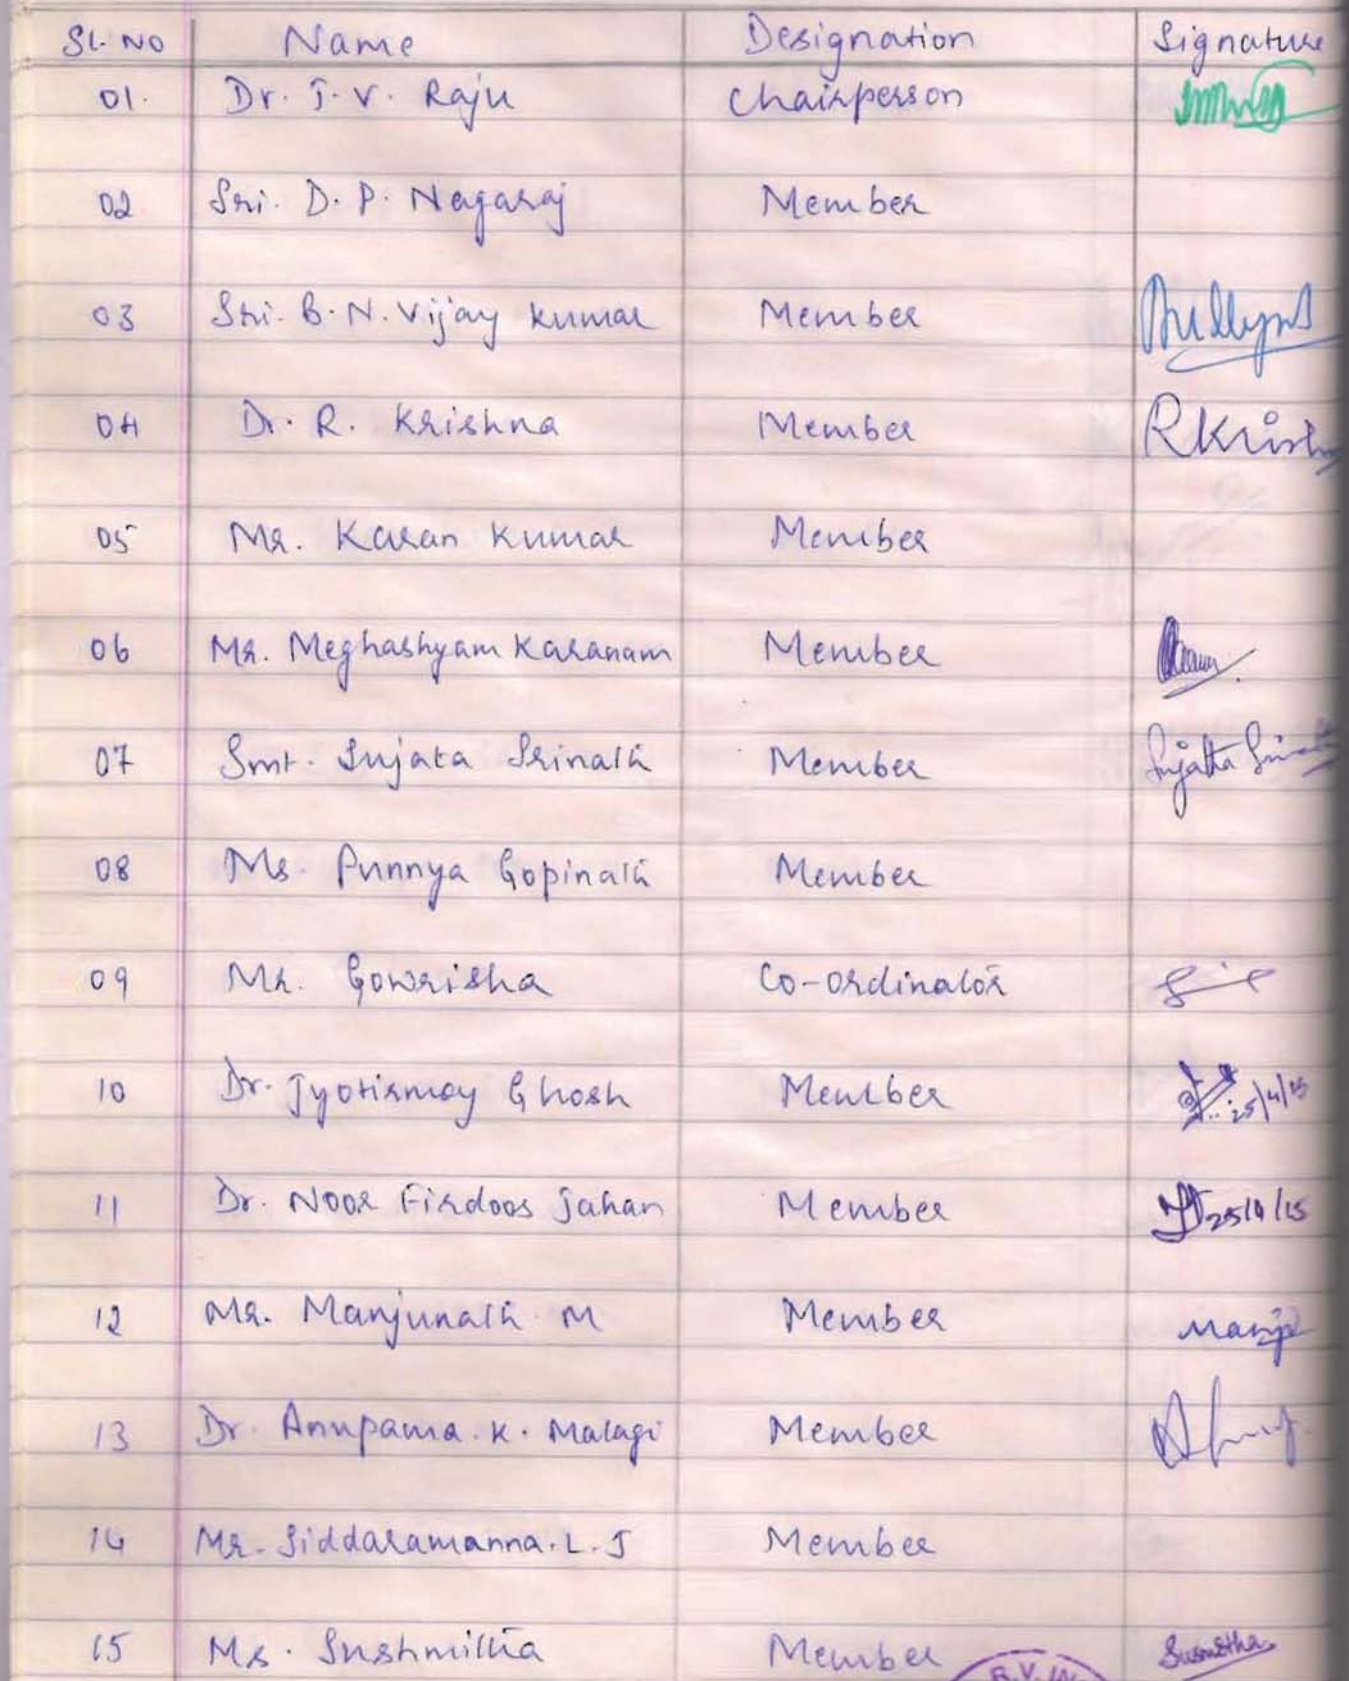 Sl. No Name Designation Signature
01. Dr. T. V. Raju Chairperson
02 Sri. D. P. Nagaraj Member
03 Sri. B. N. Vijay Kumar Member
04 Dr. R. Krishna Member RKrish
05 Mr. Karan Kumar Member
06 Mr. Meghashyam Karanam Member
07 Smt. Sujata Srinath Member Sujatha
08 Ms. Punnya Gopinath Member
09 Mr. Gowrisha Co-ordinator
10 Dr. Jyotirmoy Ghosh Member 25/4/15
11 Dr. Noor Firdoos Jahan Member 25/4/15
12 Mr. Manjunath M Member Manju
13 Dr. Anupama. K. Malagi Member
14 Mr. Siddaramanna. L. J Member
15 Ms. Sushmitha Member Susmitha
R.V. IN